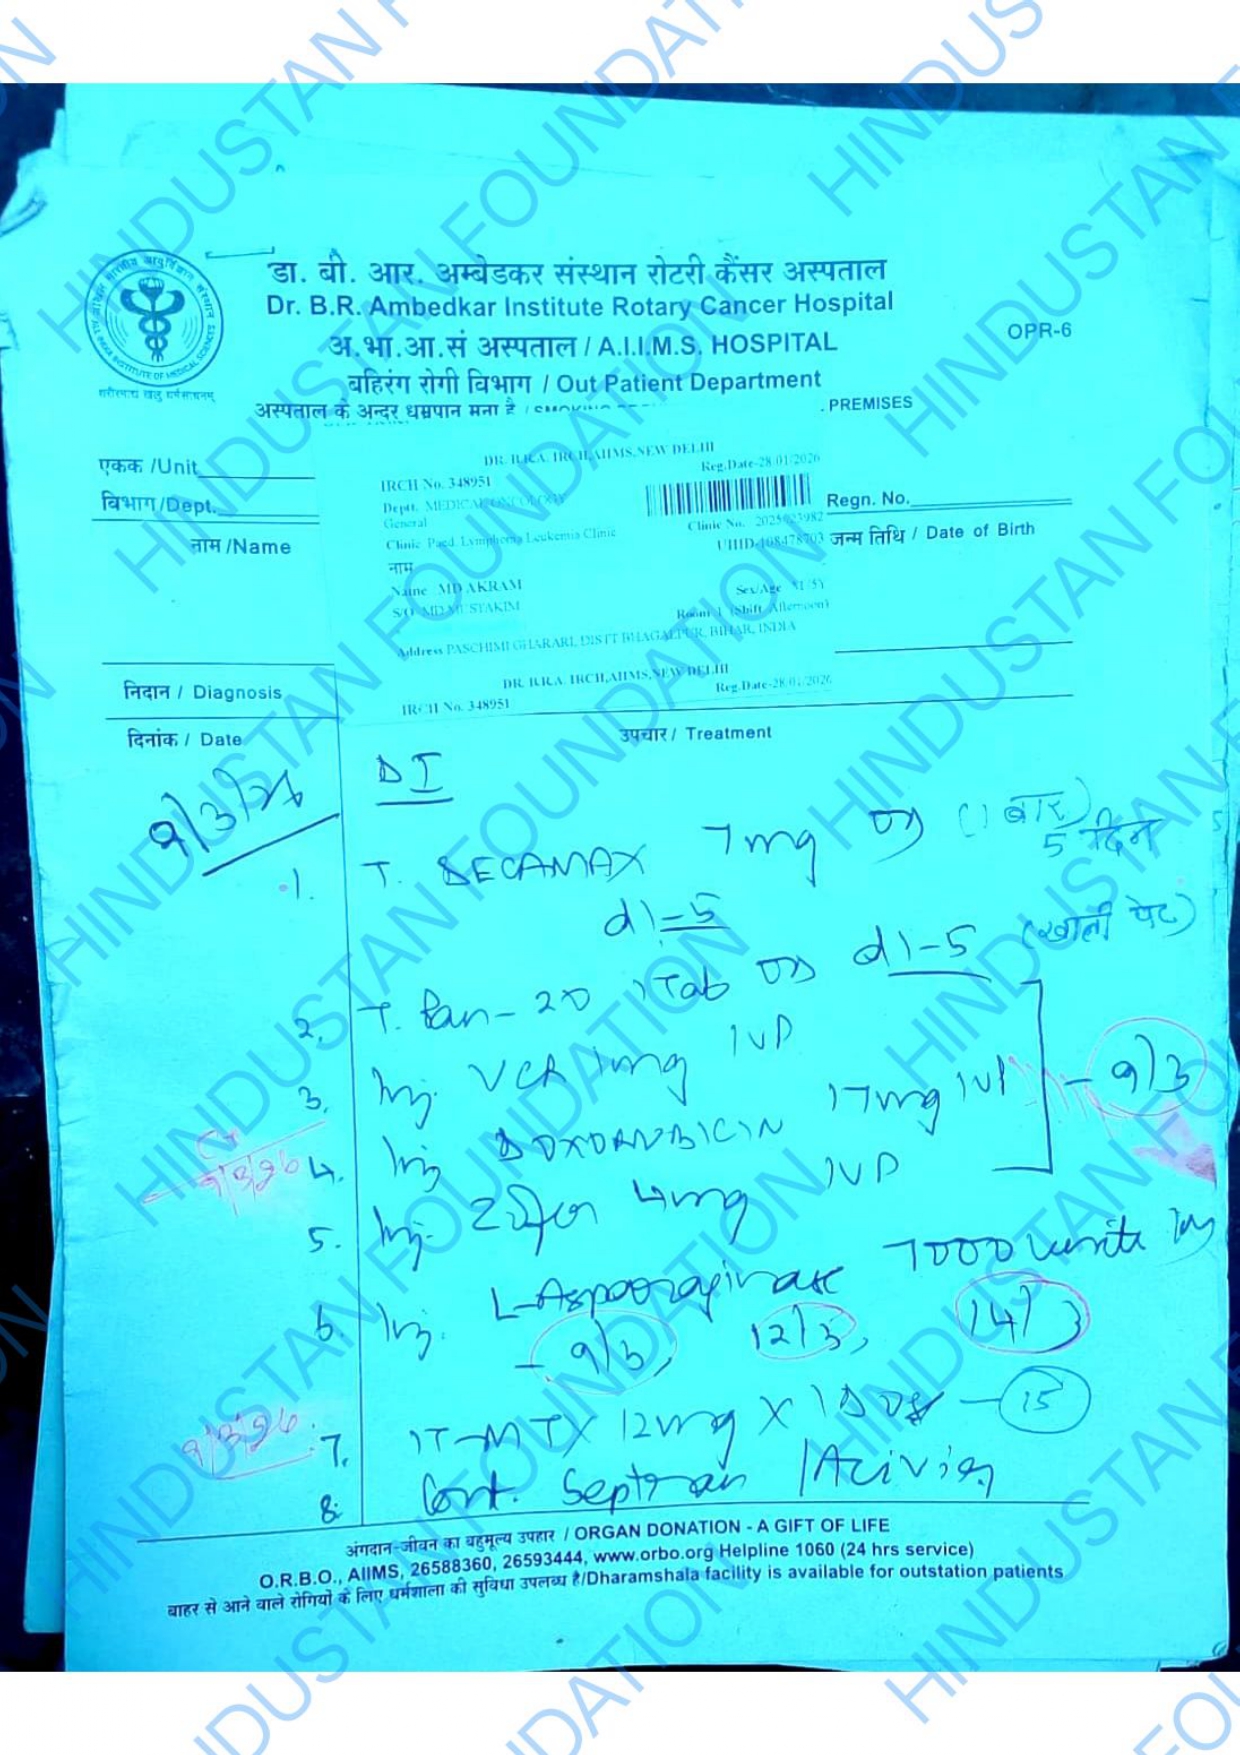 डा. बी. आर. अम्बेडकर संस्थान रोटरी कैंसर अस्पताल
Dr. B.R. Ambedkar Institute Rotary Cancer Hospital
अ.भा.आ.सं अस्पताल / A.I.I.M.S. HOSPITAL
OPR-6
बहिरंग रोगी विभाग / Out Patient Department
अस्पताल के अन्दर धूम्रपान मना है / PREMISES
एकक /Unit
विभाग /Dept.
नाम /Name
DR. B.R.A. IRCH, AIIMS, NEW DELHI
IRCH No. 348951
Reg.Date-28/01/2026
Deptt. MEDICAL ONCOLOGY
General
Clinic Paed. Lymphoma Leukemia Clinic
Clinic No.
UHID-
नाम
Name MD AKRAM
Sex/Age
S/O MD MUSTAKIM
Room 1 (Shift Afternoon)
Address PASCHIMI GHARARI, DISTT BHAGALPUR, BIHAR, INDIA
Regn. No.
जन्म तिथि / Date of Birth
DR. B.R.A. IRCH, AIIMS, NEW DELHI
Reg.Date-28/01/2026
IRCH No. 348951
निदान / Diagnosis
दिनांक / Date
उपचार / Treatment
9/3/26
1. T. 7mg OD (1 बार) 5 दिन
d1-5
2. T. Pan-20 1 Tab OD d1-5 (खाली पेट)
3. Inj. VCR 1mg IVP
4. Inj DOXORUBICIN 17mg IVP - 9/3
9/3/26
5. Inj. 4mg IVP
6. Inj. L-Asparaginase 7000 units
- 9/3, 12/3, 14/3
9/3/26
7. IT-MTX 12mg X - 15
8. Cont. Septran
अंगदान-जीवन का बहुमूल्य उपहार / ORGAN DONATION - A GIFT OF LIFE
O.R.B.O., AIIMS, 26588360, 26593444, www.orbo.org Helpline 1060 (24 hrs service)
बाहर से आने वाले रोगियों के लिए धर्मशाला की सुविधा उपलब्ध है/Dharamshala facility is available for outstation patients
HINDUSTAN FOUNDATION